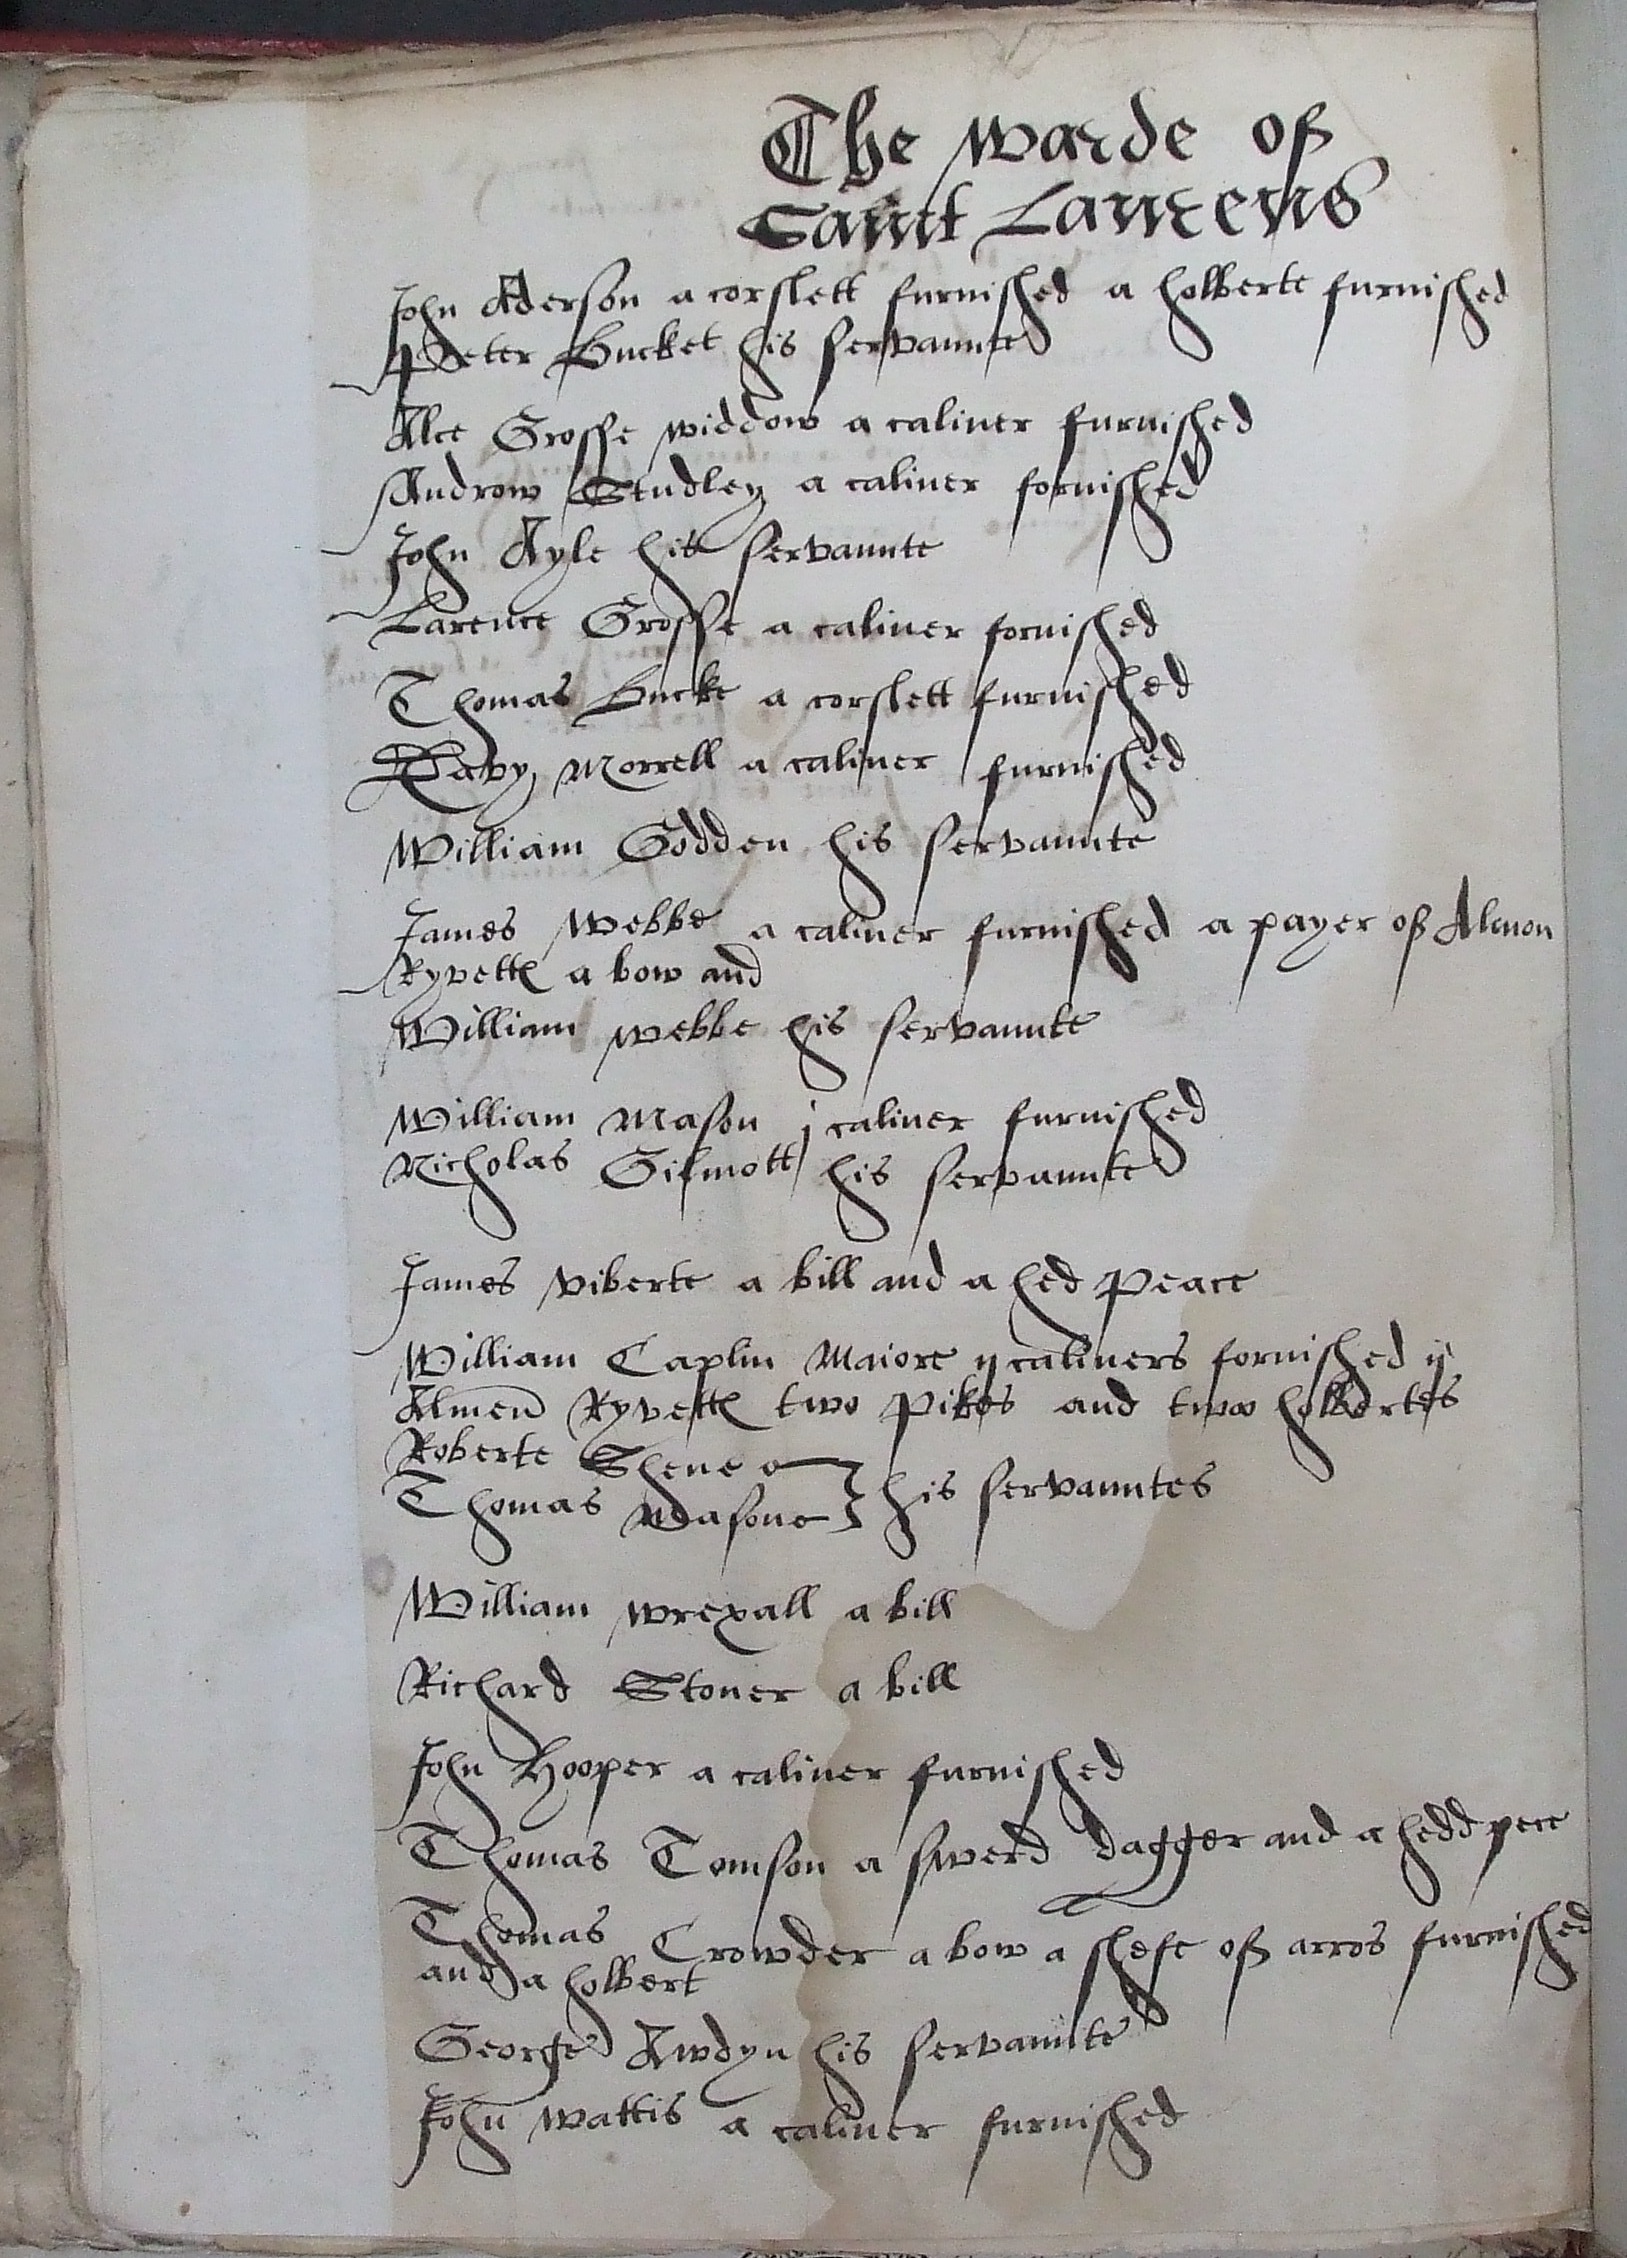 The warde of
Saint Laurens
John Aderson a corslett furnished a holberte furnished
Peter Bucket his servaunte
Alce Grosse widdow a caliver furnished
Androw Studley a caliver fornished
John Ayle his servaunte
Larence Grosse a caliver fornished
Thomas Bucke a corslett furnished
Davy Morrell a caliver furnished
William Godden his servaunte
James Webbe a caliver furnished a payer of Almon
Ryvettes a bow and
William Webbe his servaunte
William Mason j caliver furnished
Nicholas Gilmott his servaunte
James Viberte a bill and a hed peace
William Caplin Maiore ij calivers fornished ij
Almen Ryvettes two pikes and twoo holbertes
Roberte Shene
Thomas Masone his servauntes
William Wrexall a bill
Richard Stoner a bill
John Hooper a caliver furnished
Thomas Tomson a swerd dagger and a hedd pece
Thomas Crowder a bow a shefe of arros furnished
and a holbert
George Awdyn his servaunte
John Wattis a caliver furnished